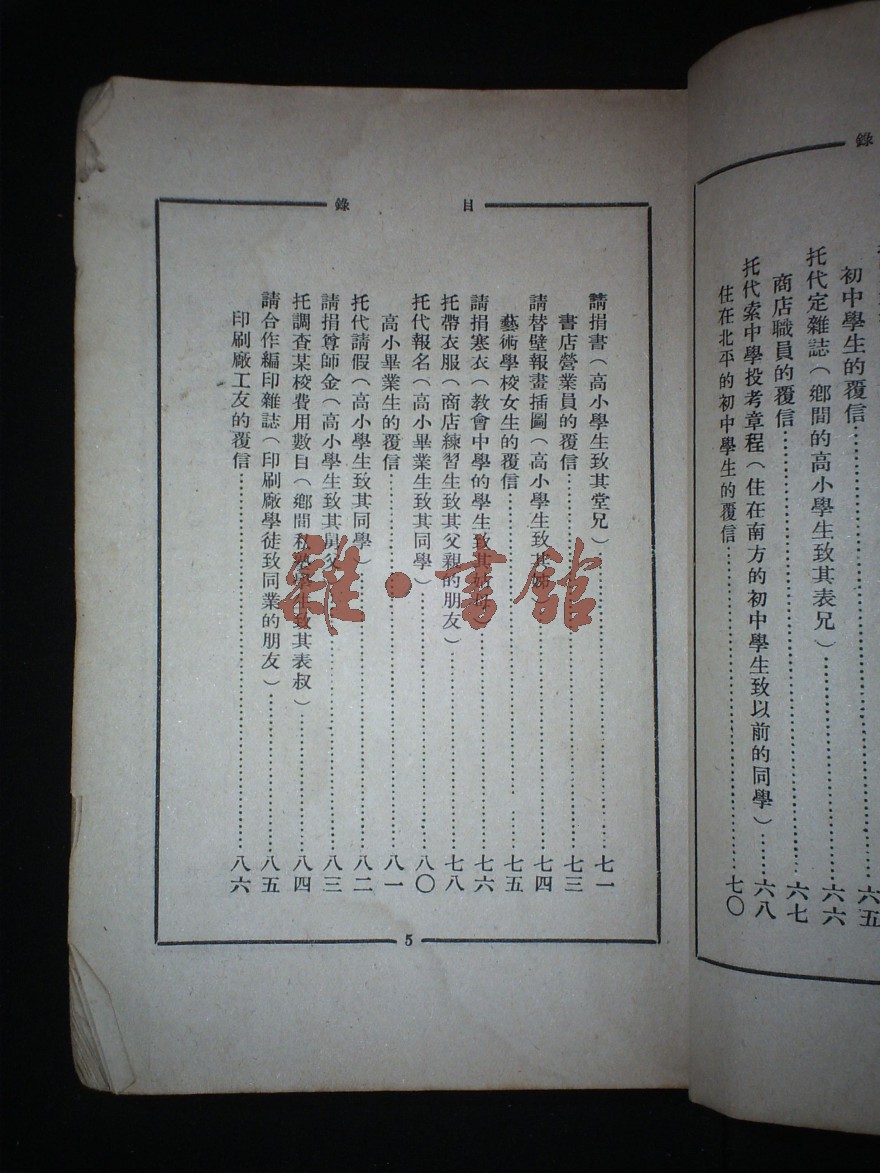 錄
初中學生的覆信……六五
托代定雜誌(鄉間的高小學生致其表兄)……六六
商店職員的覆信……六七
托代索中學投考章程(住在南方的初中學生致以前的同學)……六八
住在北平的初中學生的覆信……七〇
目 錄
請捐書(高小學生致其堂兄)……七一
書店營業員的覆信……七三
請替壁報畫插圖(高小學生致其姊)……七四
藝術學校女生的覆信……七五
請捐寒衣(教會中學的學生致其姑母)……七六
托帶衣服(商店練習生致其父親的朋友)……七八
托代報名(高小畢業生致其同學)……八〇
高小畢業生的覆信……八一
托代請假(高小學生致其同學)……八二
請捐尊師金(高小學生致其舅父)……八三
托調查某校費用數目(鄉間私塾學生致其表叔)……八四
請合作編印雜誌(印刷廠學徒致同業的朋友)……八五
印刷廠工友的覆信……八六
5
雜·書館